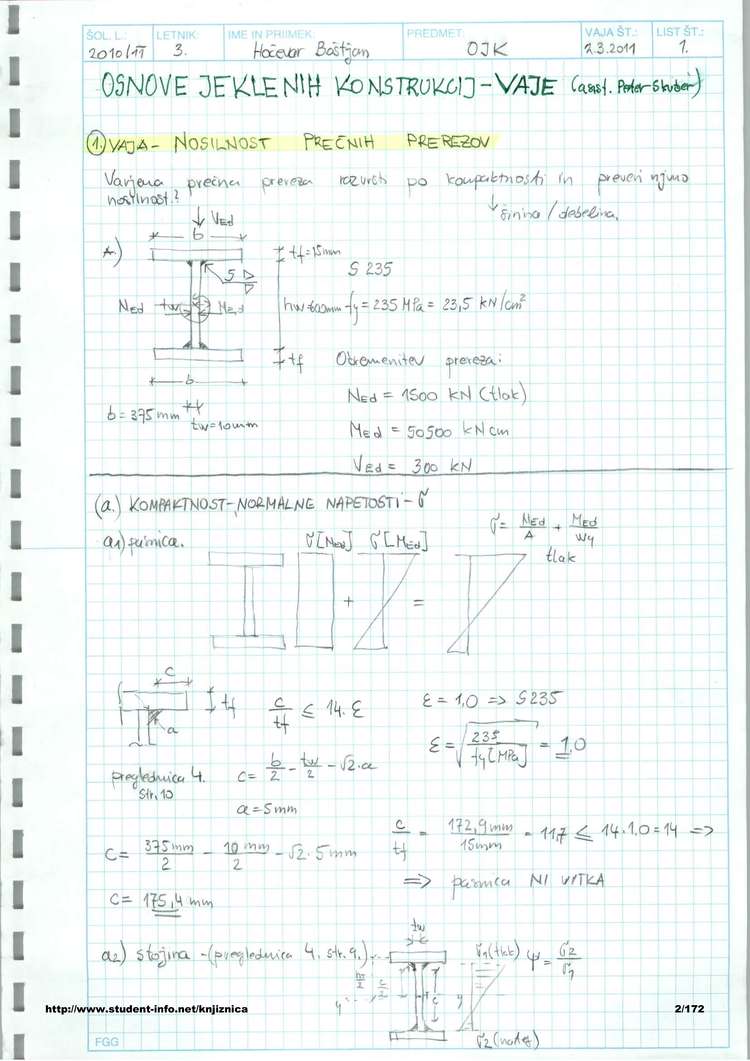 ŠOL. L.: LETNIK: IME IN PRIIMEK: PREDMET: VAJA ŠT.: LIST ŠT.:
2010/11 3. Hočevar Boštjan OJK 2.3.2011 1.
OSNOVE JEKLENIH KONSTRUKCIJ - VAJE (asist. Peter Skuber)
1. VAJA - NOSILNOST PREČNIH PREREZOV
Varjena prečna prereza razvrsti po kompaktnosti in preveri njuno
nosilnost?
↓ širina / debelina.
↓ VEd
b
A.)
tf = 15mm
5
S 235
NEd tw MEd
hw
fy = 235 MPa = 23,5 kN/cm²
tf
Obremenitev prereza:
b
NEd = 1500 kN (tlak)
b = 375 mm
tw = 10mm
MEd = 50500 kNcm
VEd = 300 kN
(a.) KOMPAKTNOST - NORMALNE NAPETOSTI - σ
a1) pasnica.
σ[NEd] σ[MEd]
σ = NEd/A + MEd/Wy
tlak
+ =
c
tf
a
c/tf ≤ 14·ε
ε = 1,0 => S235
ε = √(235/fy[MPa]) = 1,0
preglednica 4.
str. 10
c = b/2 - tw/2 - √2·a
a = 5mm
c = 375mm/2 - 10mm/2 - √2·5mm
c/tf = 172,9mm/15mm = 11,7 ≤ 14·1,0 = 14 =>
=> pasnica NI VITKA
c = 175,4 mm
a2) stojina - (preglednica 4. str. 9.)
tw
σ1 (tlak)
ψ = σ2/σ1
c
y
y
σ2 (nateg)
http://www.student-info.net/knjiznica 2/172
FGG